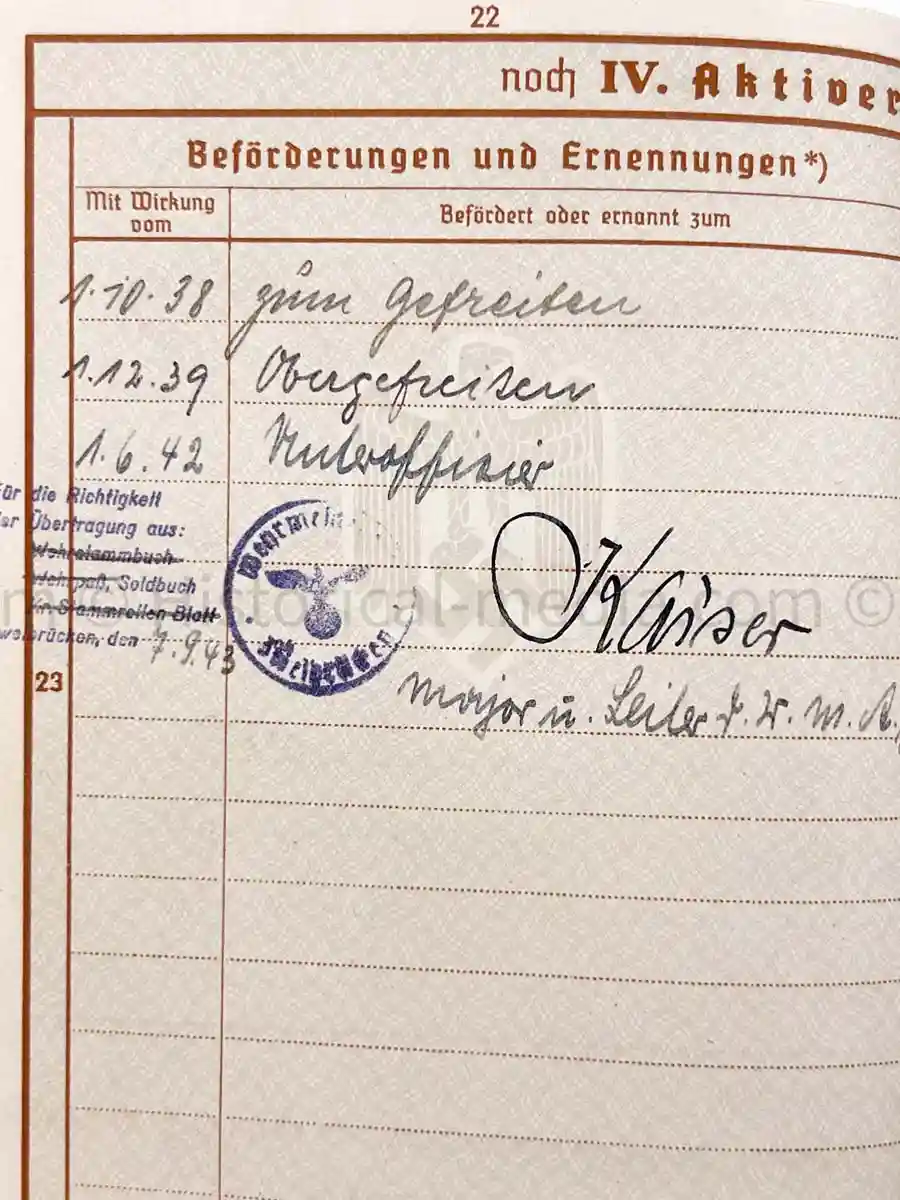 22
noch IV. Aktiver
Beförderungen und Ernennungen*)
Mit Wirkung
vom
Befördert oder ernannt zum
1.10.38 zum Gefreiten
1.12.39 Obergefreiten
1.6.42 Unteroffizier
für die Richtigkeit
der Übertragung aus:
Wehrstammbuch
Wehrpaß, Soldbuch
Kr. Stammrollen Blatt
Zweibrücken, den 7.9.43
Wehrmeld
Zweibrücken
Kaiser
23
Major u. Leiter d. W. M. A.
historical-media.com ©